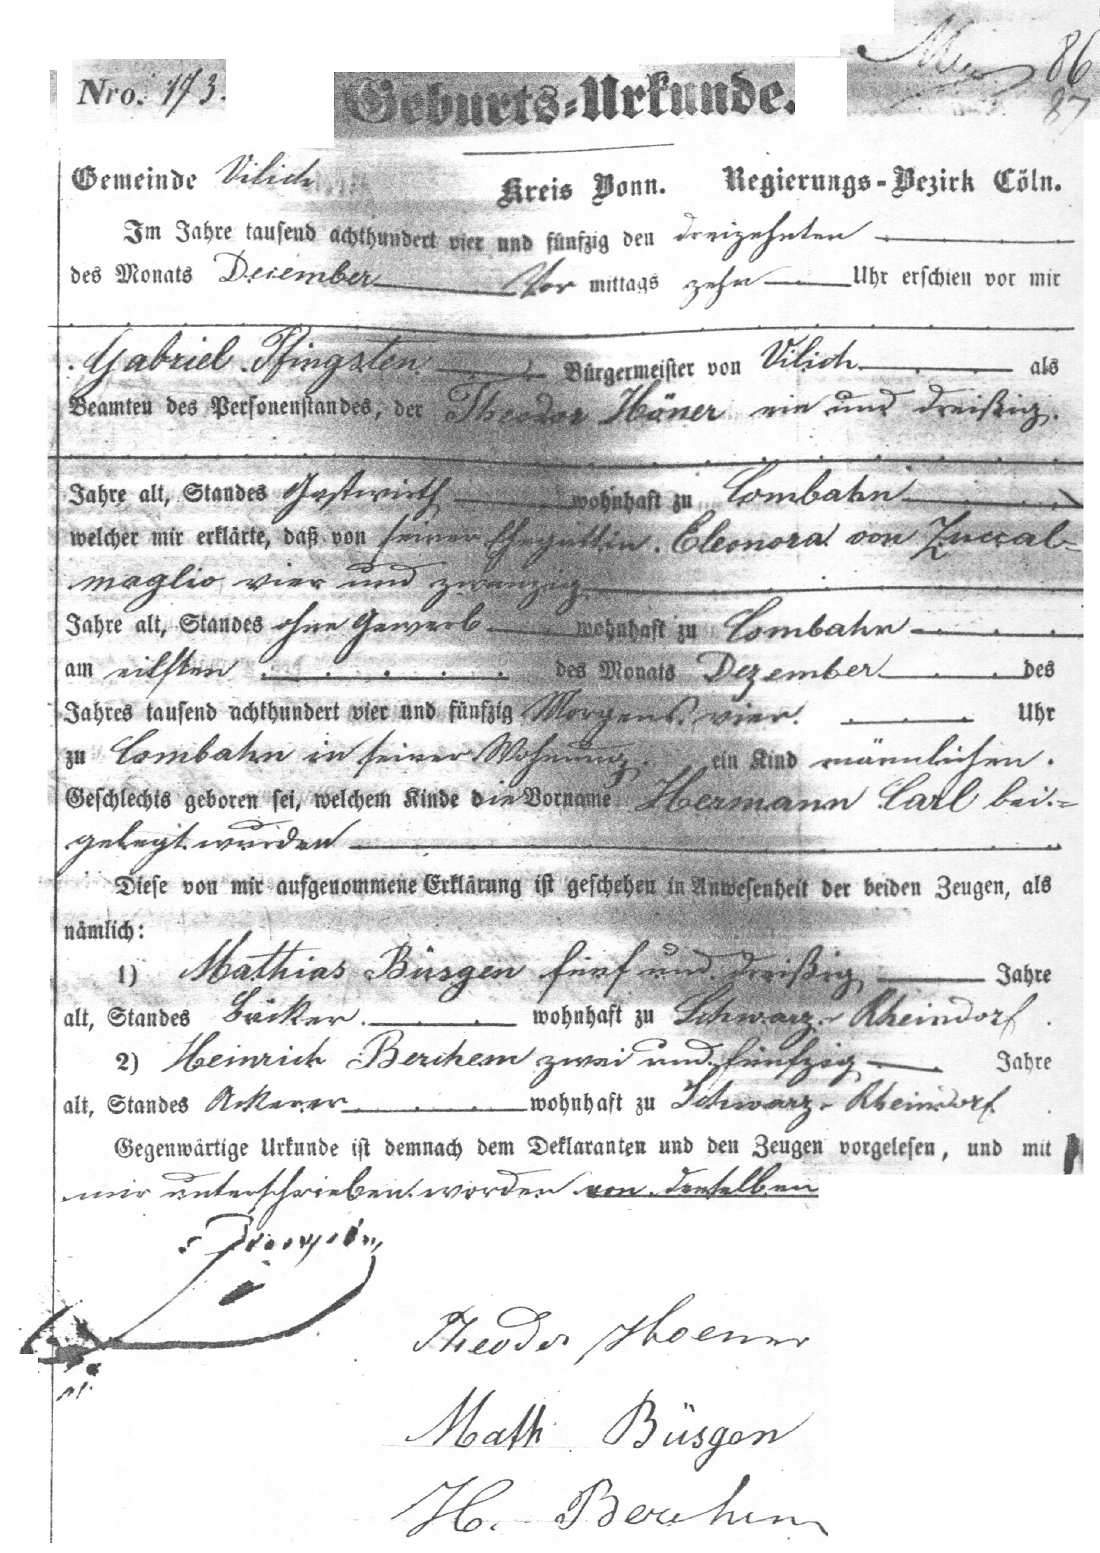 86
87
Nro. 173.
Geburts-Urkunde.
Gemeinde Vilich Kreis Bonn. Regierungs-Bezirk Cöln.
Im Jahre tausend achthundert vier und fünfzig den dreizehnten
des Monats December Vor mittags zehn Uhr erschien vor mir
Gabriel Pfingsten Bürgermeister von Vilich als
Beamten des Personenstandes, der Theodor Höner ein und dreißig
Jahre alt, Standes Gastwirth wohnhaft zu Combahn
welcher mir erklärte, daß von seiner Ehegattin Eleonora von Zuccal-
maglio vier und zwanzig
Jahre alt, Standes ohne Gewerb wohnhaft zu Combahn
am eilften des Monats Dezember des
Jahres tausend achthundert vier und fünfzig Morgens vier Uhr
zu Combahn in seiner Wohnung ein Kind männlichen
Geschlechts geboren sei, welchem Kinde die Vorname Hermann Carl bei-
gelegt wurden
Diese von mir aufgenommene Erklärung ist geschehen in Anwesenheit der beiden Zeugen, als
nämlich:
1) Mathias Büsgen fünf und dreißig Jahre
alt, Standes Bäcker wohnhaft zu Schwarz-Rheindorf
2) Heinrich Berchem zwei und fünfzig Jahre
alt, Standes Ackerer wohnhaft zu Schwarz-Rheindorf
Gegenwärtige Urkunde ist demnach dem Deklaranten und den Zeugen vorgelesen, und mit
mir unterschrieben worden von denselben
Theodor Hoener
Math Büsgen
H. Berchem